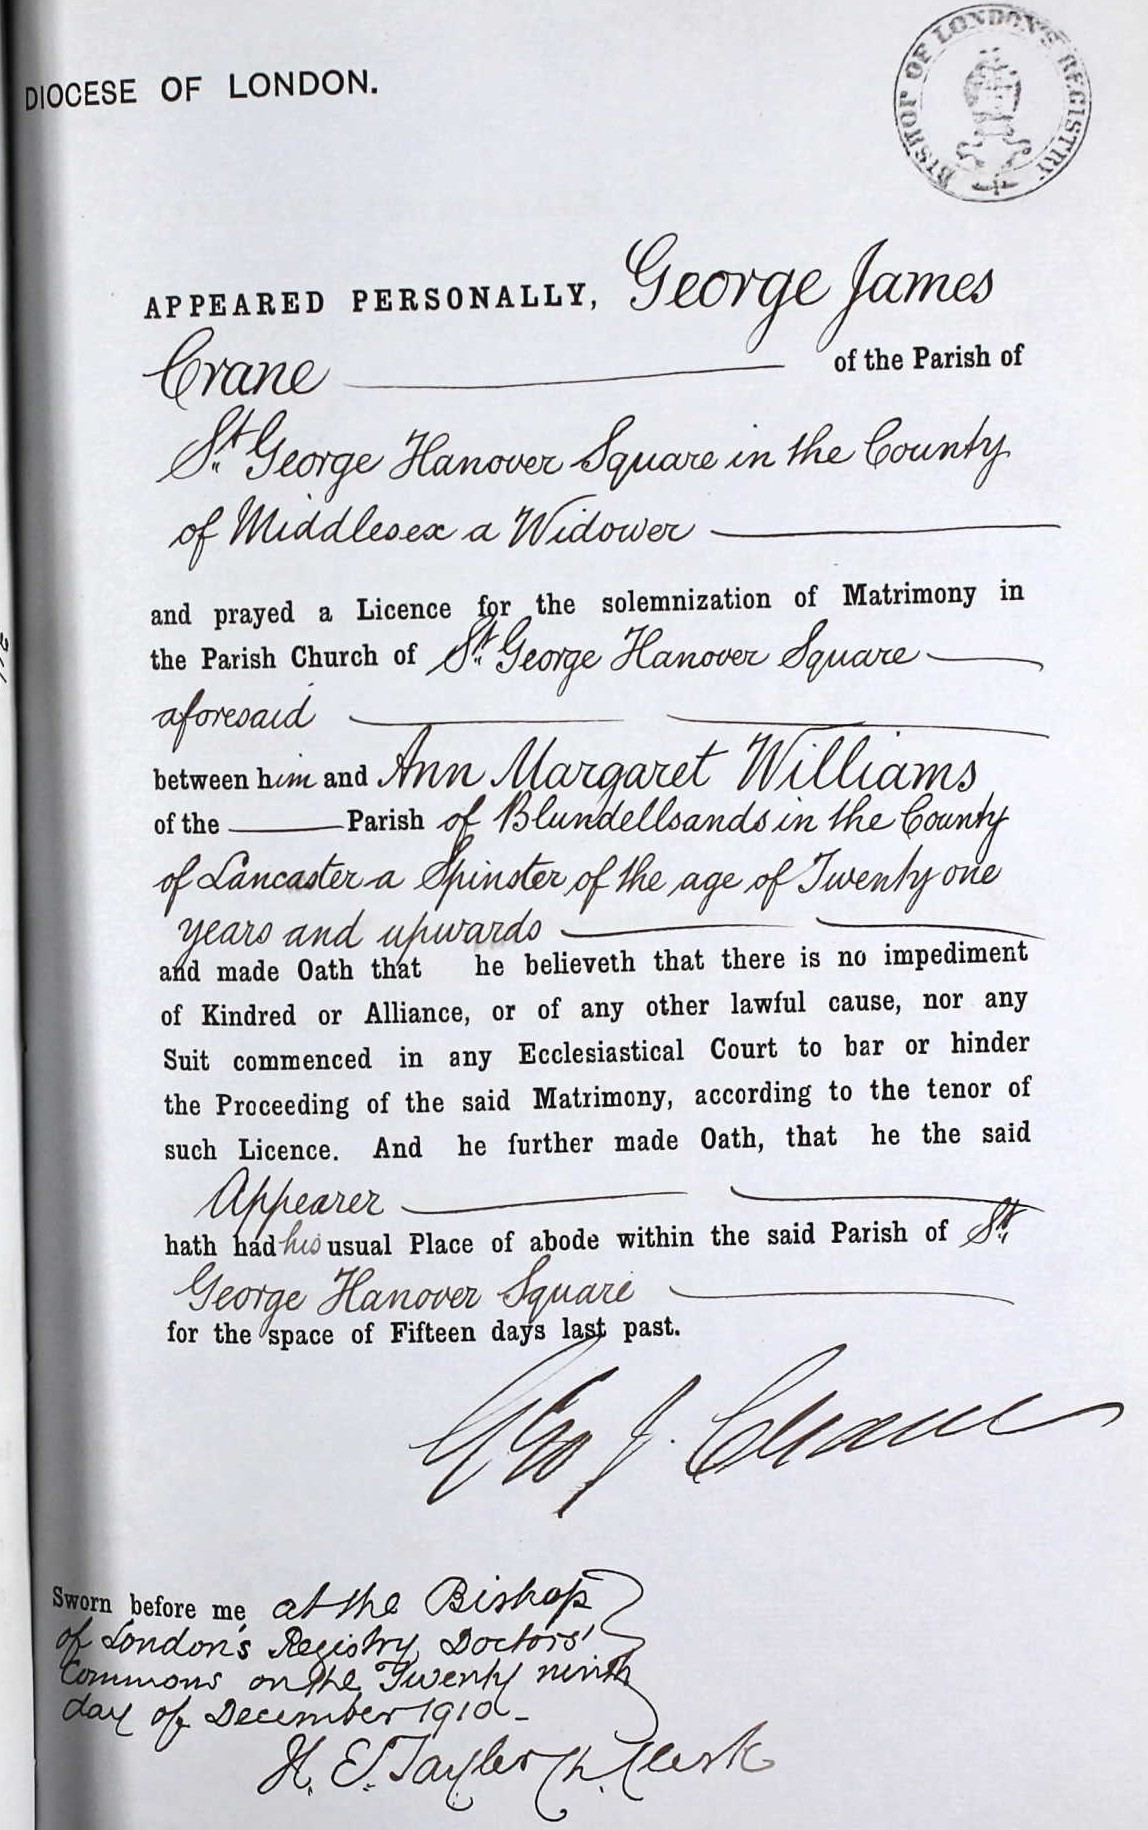 DIOCESE OF LONDON.
BISHOP OF LONDON'S REGISTRY
APPEARED PERSONALLY, George James
Crane of the Parish of
St. George Hanover Square in the County
of Middlesex a Widower
and prayed a Licence for the solemnization of Matrimony in
the Parish Church of St. George Hanover Square
aforesaid
between him and Ann Margaret Williams
of the Parish of Blundellsands in the County
of Lancaster a Spinster of the age of Twenty one
years and upwards
and made Oath that he believeth that there is no impediment
of Kindred or Alliance, or of any other lawful cause, nor any
Suit commenced in any Ecclesiastical Court to bar or hinder
the Proceeding of the said Matrimony, according to the tenor of
such Licence. And he further made Oath, that he the said
Appearer
hath had his usual Place of abode within the said Parish of St.
George Hanover Square
for the space of Fifteen days last past.
Geo J. Crane
Sworn before me, at the Bishop
of London's Registry, Doctors'
Commons on the Twenty ninth
day of December 1910 -
H. E. Tayler Clerk